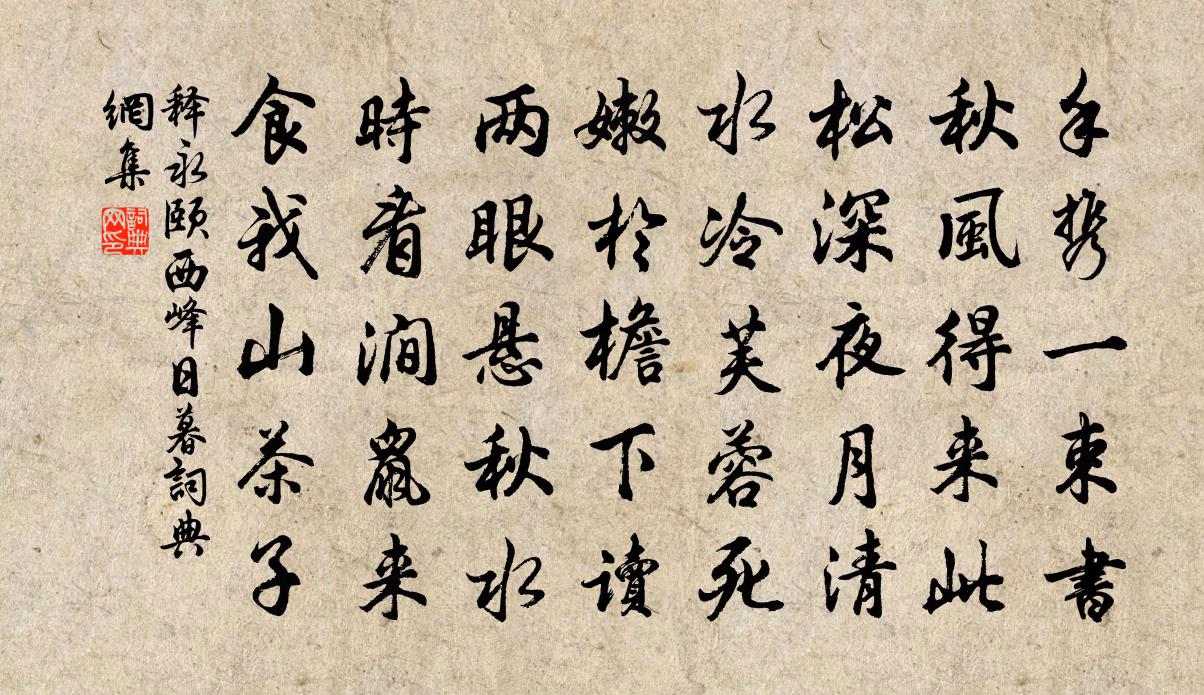 手携一束書
秋風得来此
松深夜月清
水冷芙蓉死
嫩於檐下讀
两眼悬秋水
時看澗鼠来
食我山茶子
释永頤西峰日暮詞典
網集
詞典網印